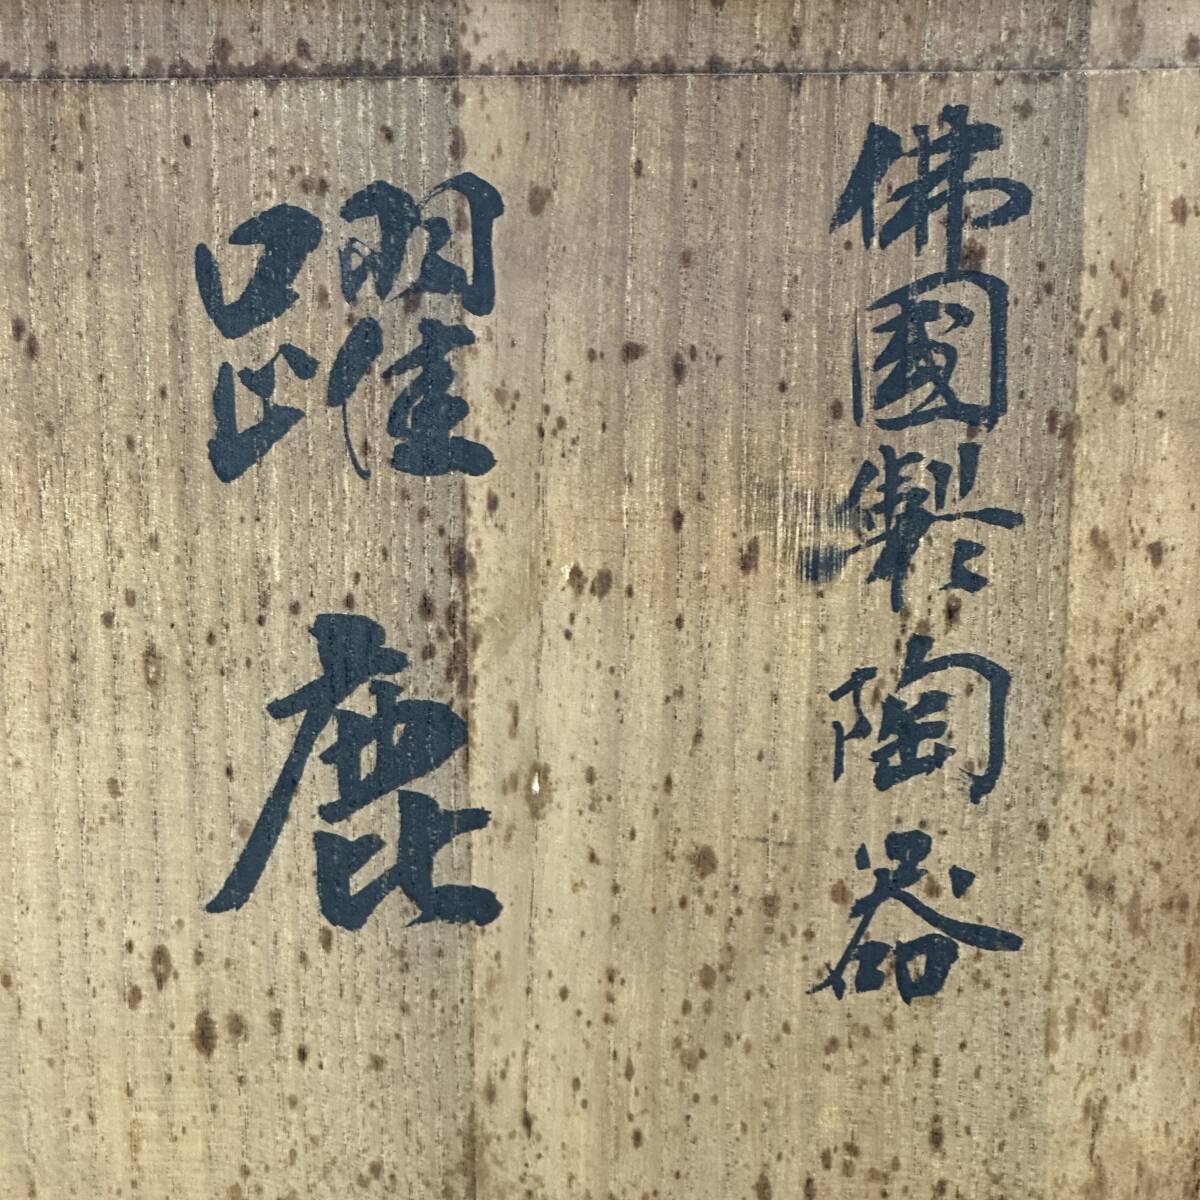 佛國製陶器
躍鹿